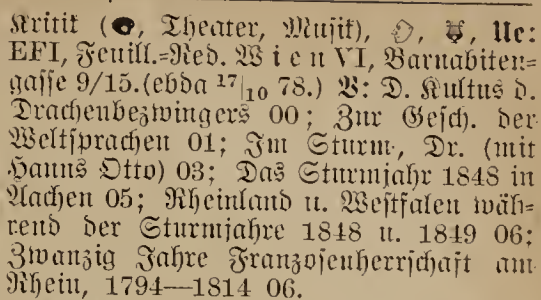 Kritik (, Theater, Musik), , , Ue:
EFI, Feuill.=Red. Wien VI, Barnabiten=
gasse 9/15.(ebda 17|10 78.) V: D. Kultus d.
Drachenbezwingers 00; Zur Gesch. der
Weltsprachen 01; Im Sturm, Dr. (mit
Hanns Otto) 03; Das Sturmjahr 1848 in
Aachen 05; Rheinland u. Westfalen wäh=
rend der Sturmjahre 1848 u. 1849 06;
Zwanzig Jahre Franzosenherrschaft am
Rhein, 1794—1814 06.